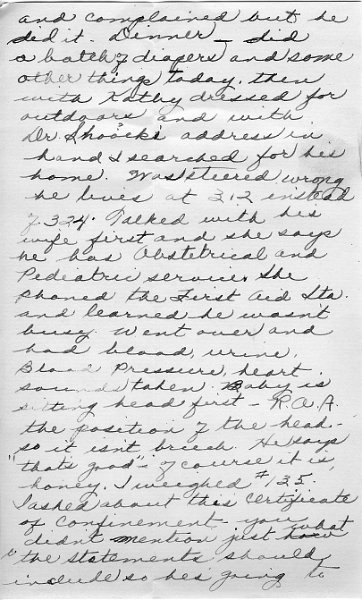 and complained but he
did it. Dinner – did
a batch of diapers and some
other things today. then
with Kathy dressed for
outdoors and with
Dr. Shoock's address in
hand I searched for his
home. Was steered wrong
he lives at 312 instead
of 324. Talked with his
wife first and she says
he has Obstetrical and
Pediatric service. She
phoned the First Aid Sta.
and learned he wasn't
busy. Went over and
had blood, urine,
Blood Pressure, heart
sounds taken. Baby is
sitting head first – R.O.A.
the position of the head –
so it isn't breech. He says
"that's good" – of course it is
honey. I weighed #125.
I asked about this Certificate
of Confinement – you
didn't mention just what
the statements should
include so he's going to